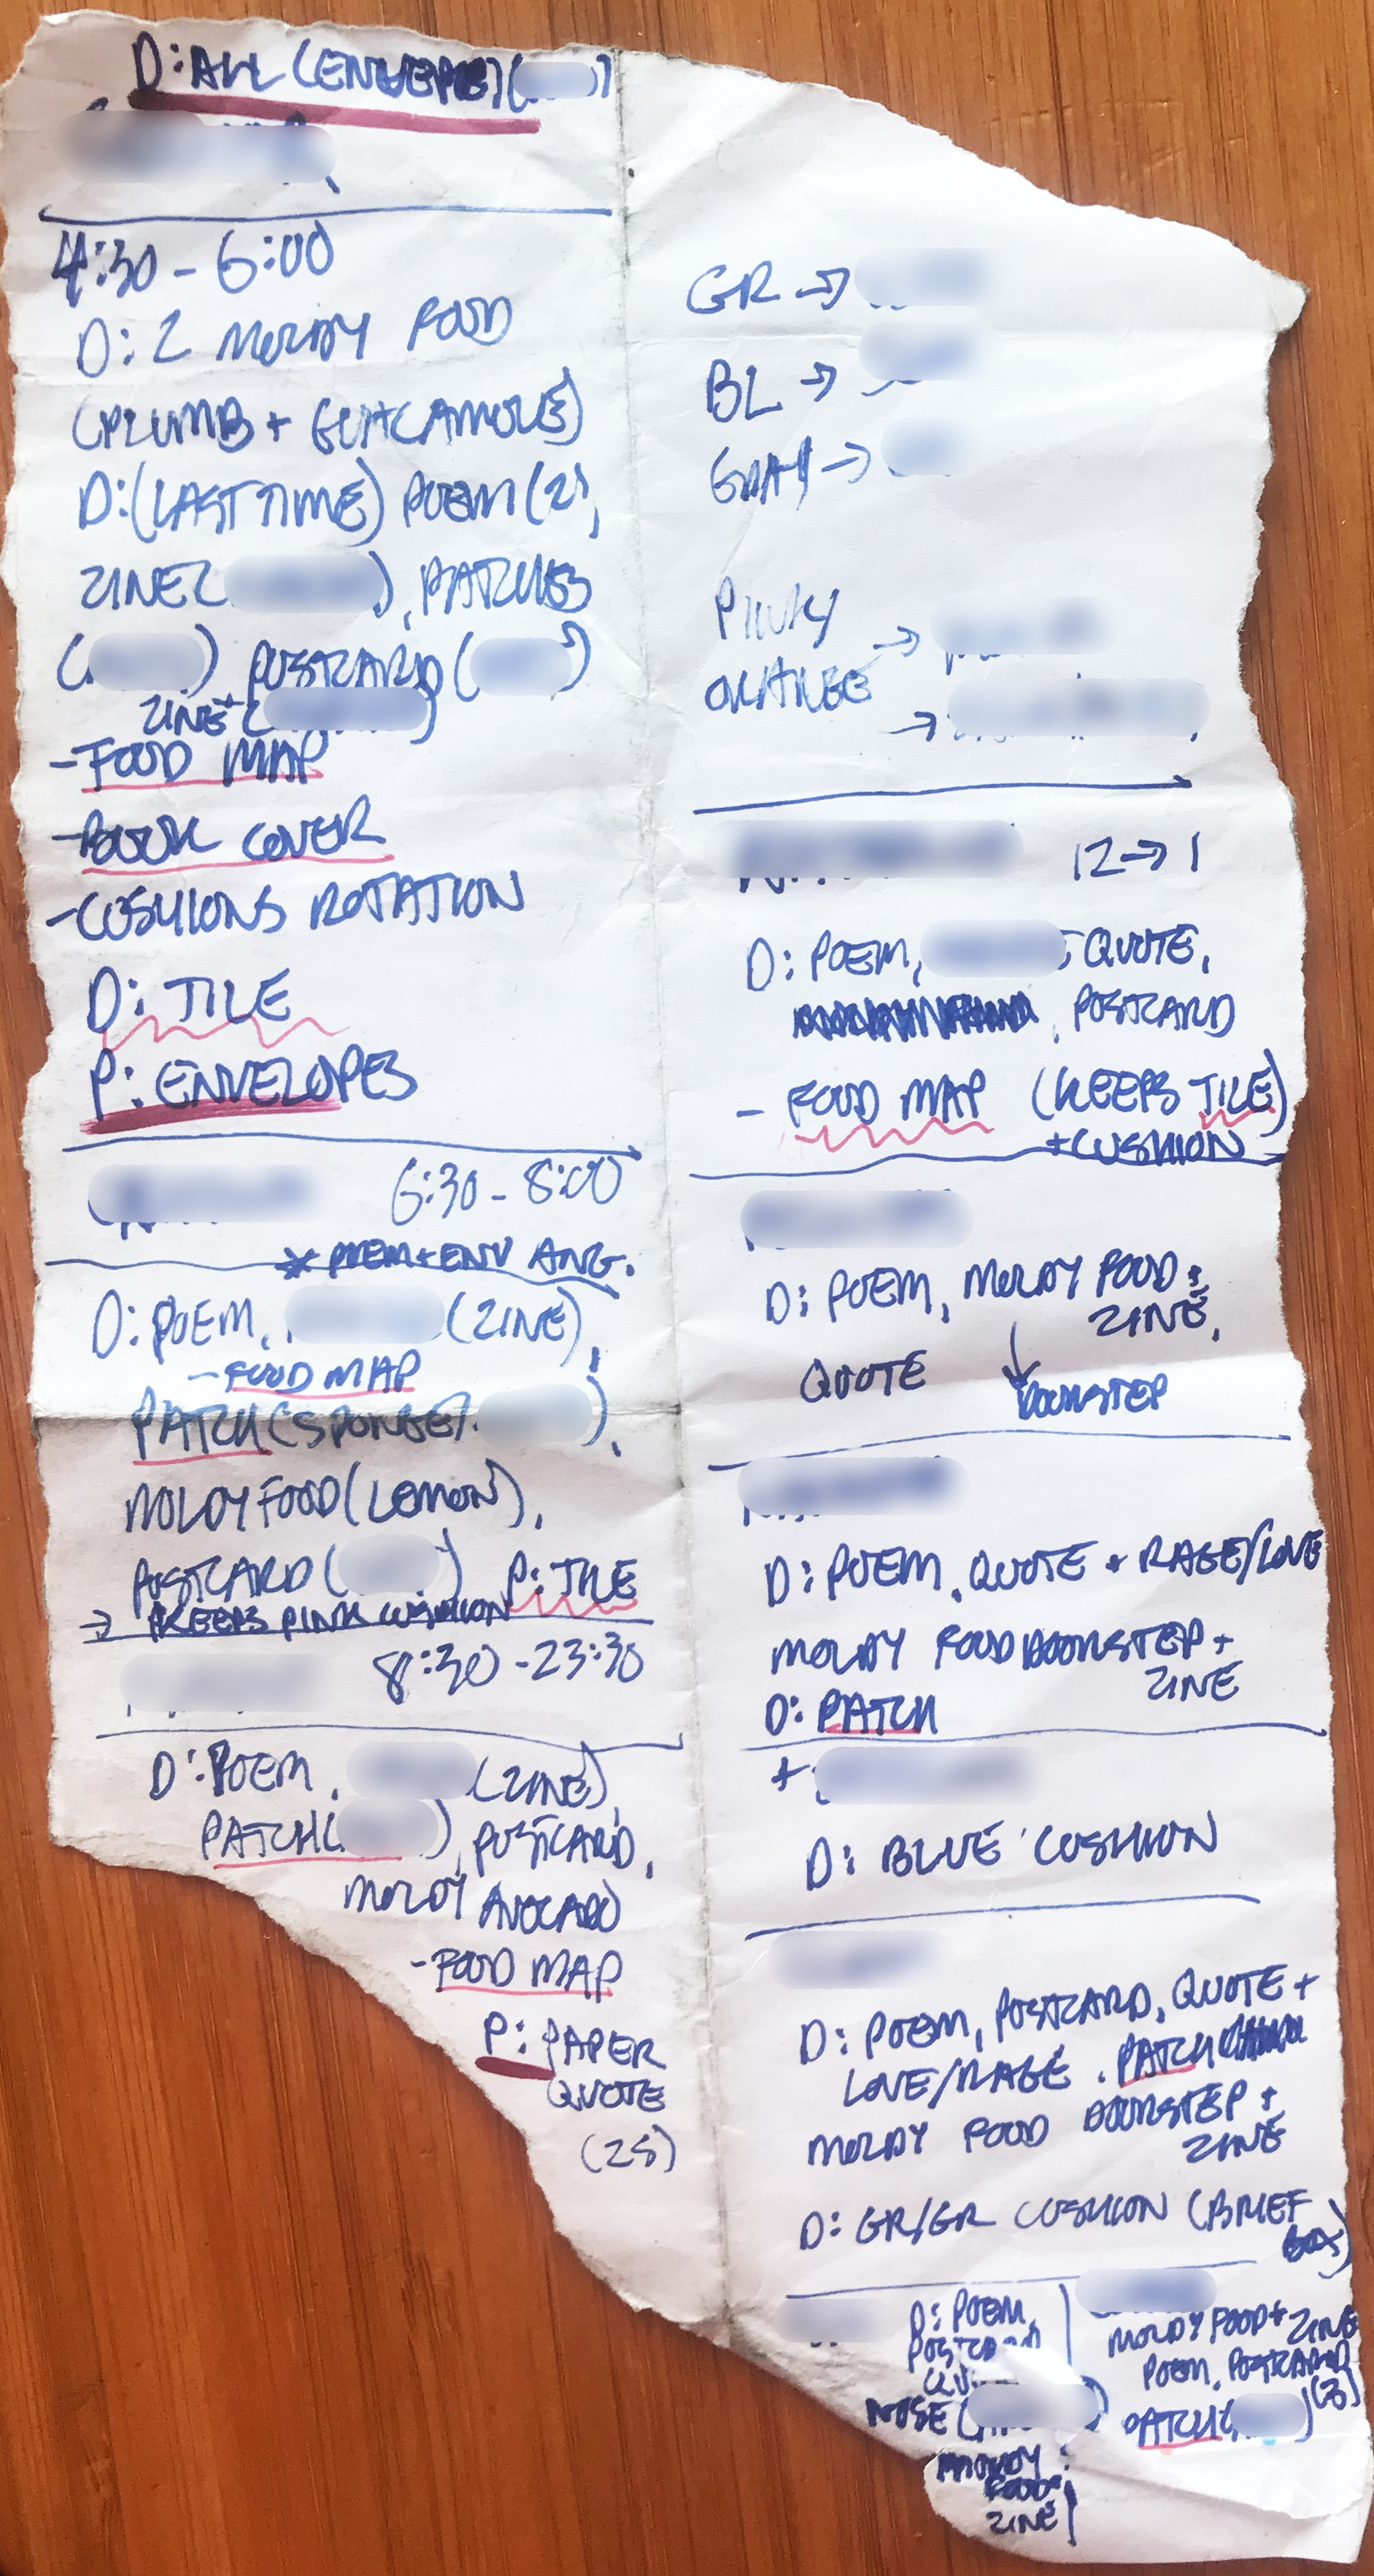 D: ALL (ENVELOPE) (
4:30 - 6:00
D: 2 MOLDY FOOD
(PLUMB + GUACAMOLE)
D: (LAST TIME) POEM (2),
ZINE ( ), PATCHES
( ) POSTCARD ( )
ZINE + ( )
- FOOD MAP
- BOOK COVER
- CUSHIONS ROTATION
D: TILE
P: ENVELOPES
6:30 - 8:00
* POEM + ENV ANG.
D: POEM, (ZINE),
- FOOD MAP
PATCH (SPONGE), ),
MOLDY FOOD (LEMON),
POSTCARD ( ) P: TILE
→ KEEPS PINK CUSHION
8:30 - 23:30
D: POEM, (ZINE),
PATCH ( ), POSTCARD,
MOLDY AVOCADO
- FOOD MAP
P: PAPER
QUOTE
(25)
GR →
BL →
GRAY →
PINK/
ORANGE →
→
12 → 1
D: POEM, QUOTE,
, POSTCARD
- FOOD MAP (KEEPS TILE)
+ CUSHION
D: POEM, MOLDY FOOD +
ZINE,
QUOTE ↓
DOORSTEP
D: POEM, QUOTE + RAGE/LOVE
MOLDY FOOD DOORSTEP +
ZINE
D: PATCH
+
D: BLUE CUSHION
D: POEM, POSTCARD, QUOTE +
LOVE/RAGE, PATCH
MOLDY FOOD DOORSTEP +
ZINE
D: GR/GR CUSHION (BRIEF
BOX)
D: POEM
POSTCARD
MOLDY
FOOD +
ZINE
MOLDY FOOD + ZINE
POEM, POSTCARD
PATCH ( ) (3)